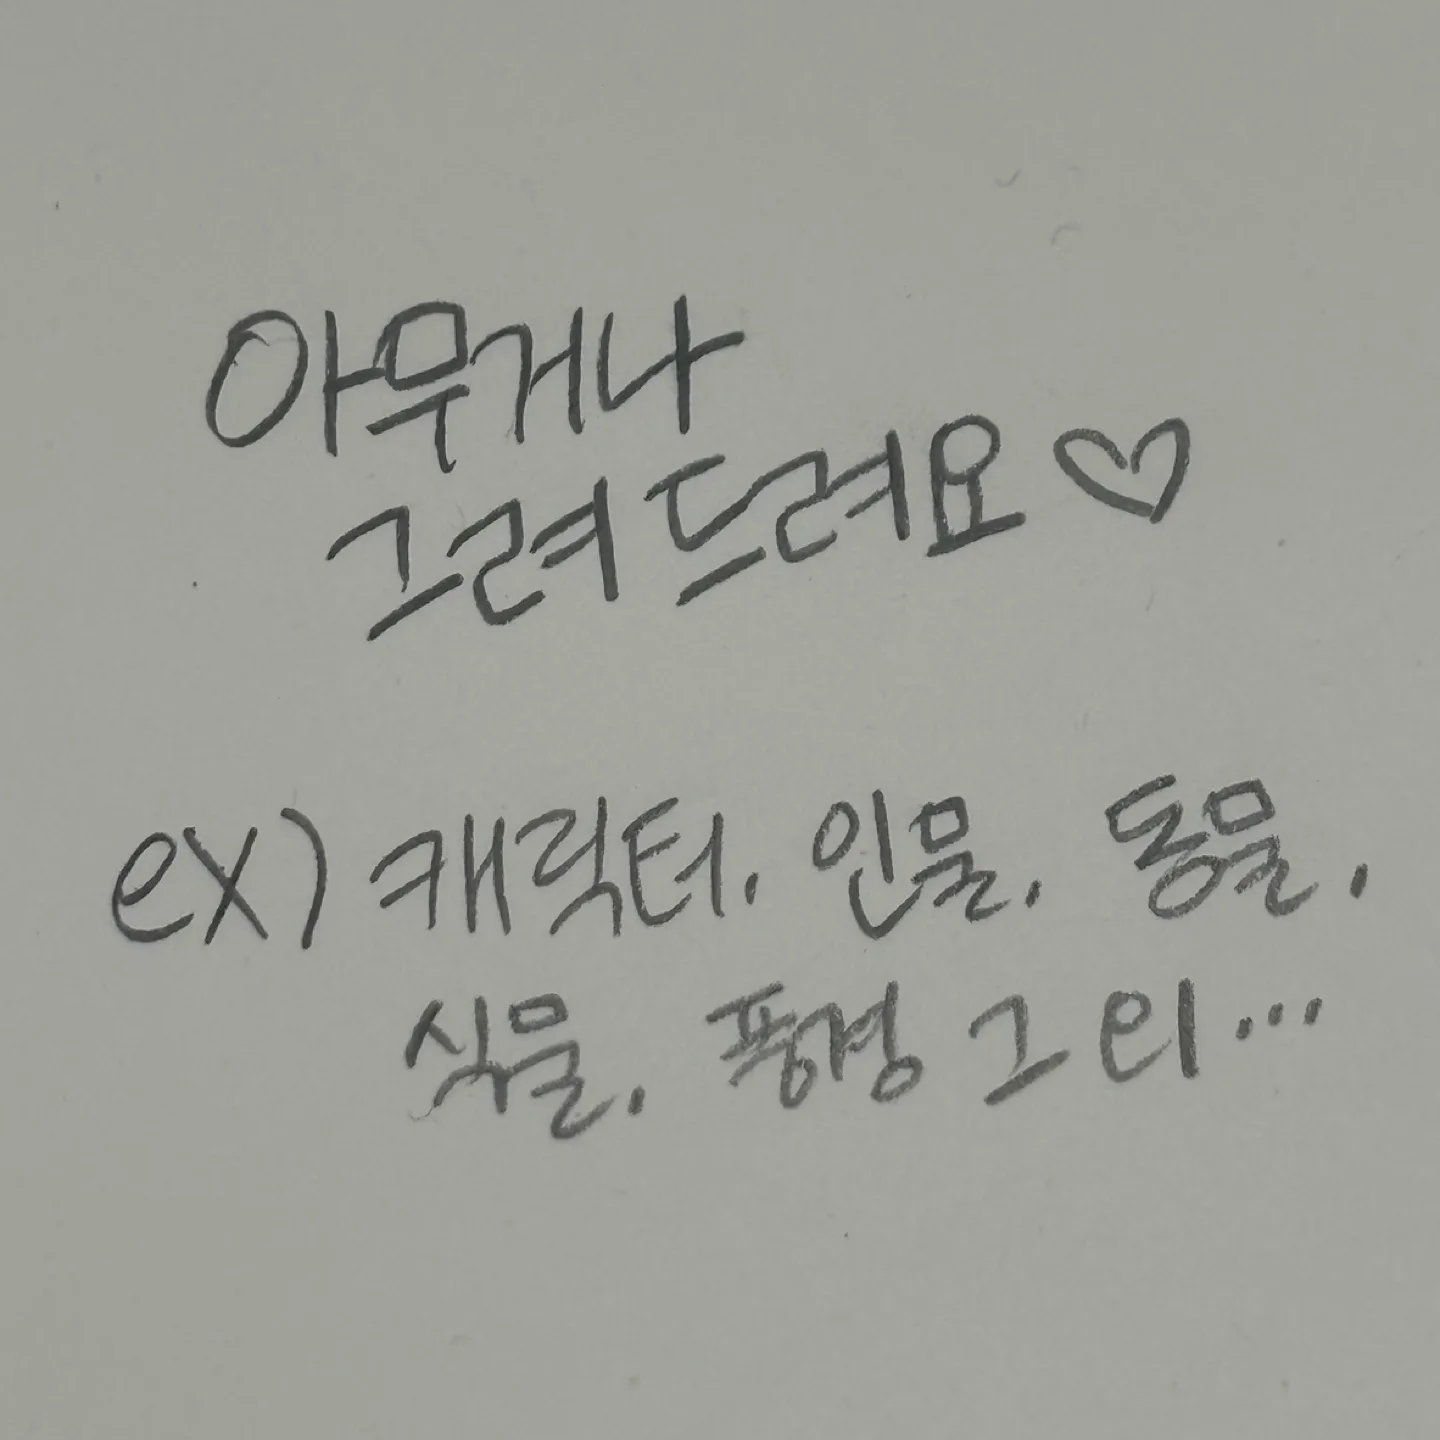 아무거나
그려드려요♡
ex) 캐릭터. 인물. 동물.
식물. 풍경 그 외...